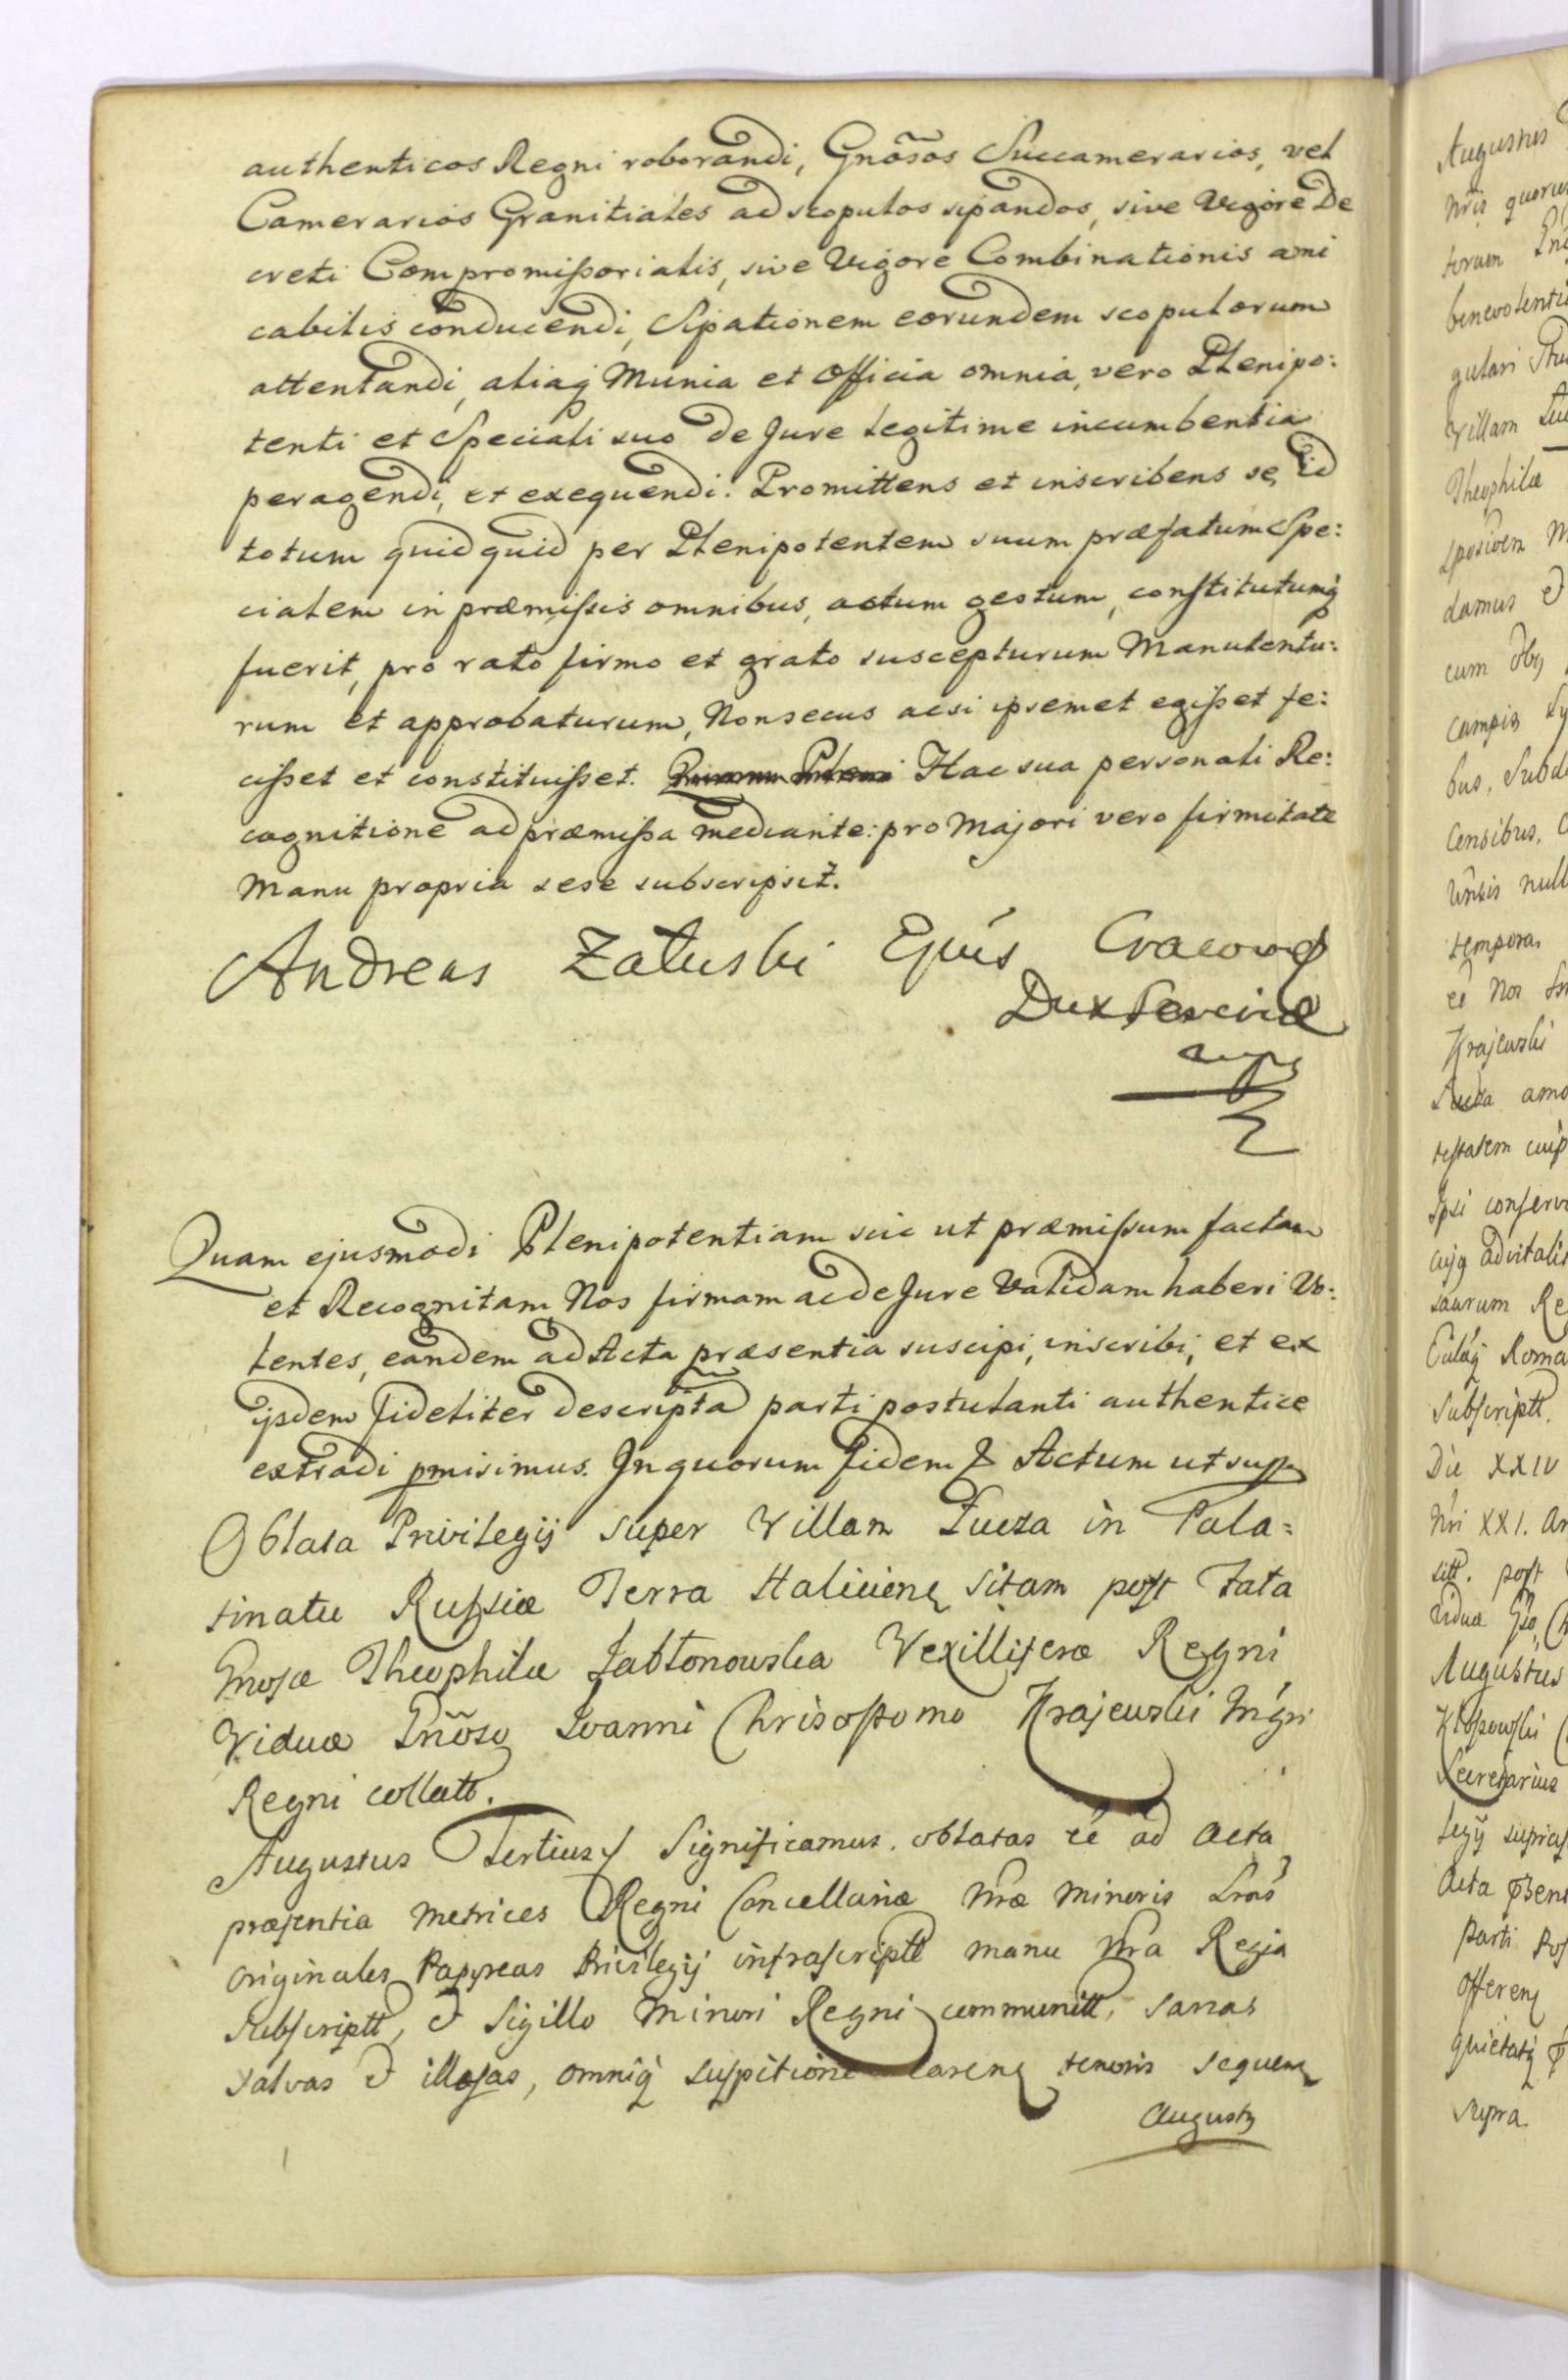 authenticos Regni roborandi, Gnõsos Succamerarios, vel
Camerarios Granitiales ad scopulos sipandos, sive Vigore De
creti Compromissorialis, sive Vigore Combinationis ami
cabilis conducendi, Sipationem eorundem scopulorum
attentandi, aliaq Munia et Officia omnia, vero Plenipo:
tenti et Speciali suo de Jure legitime incumbentia
peragendi, et exequendi. Promittens et inscribens se, id
totum quid quid per Plenipotentem suum præfatum Spe:
cialem in præmissis omnibus, actum gestum, constitutumq
fuerit, pro rato firmo et grato suscepturum Manutentu:
rum et approbaturum, Non secus acsi ipsemet egisset fe:
cisset et constituisset. Hac sua personali Re:
cognitione ad præmissa mediante: pro Majori vero firmitate
Manu propria sese subscripsit.
Andreas Załuski Epus Cracov
Dux Severiæ
mp
Quam ejusmodi Plenipotentiam sic ut præmissum factam
et Recognitam Nos firmam ac de Jure Validam haberi Vo:
lentes, eandem ad Acta præsentia suscipi, inscribi, et ex
ijsdem fideliter descripta parti postulanti authentice
extradi pmisimus. In quorum fidem & Actum ut supr
Oblata Privilegij super Villam Łucza in Pala=
tinatu Russiæ Terra Halicien sitam post Fata
Gnosæ Theophilæ Jabłonowska Vexilliferæ Regni
Viduæ Gnõso Joanni Chrisostomo Krajewski Mgri
Regni collatt.
Augustus Tertius & Significamus. oblatas eé ad Acta
præsentia Metrices Regni Cancellariæ Nræ Minoris Lras
originales Papyreas Privilegij infrascriptt manu Nra Regia
Subscriptt, & Sigillo Minori Regni communitt, sanas
salvas & illæsas, omniq suspitione caren tenoris sequen
Augusty